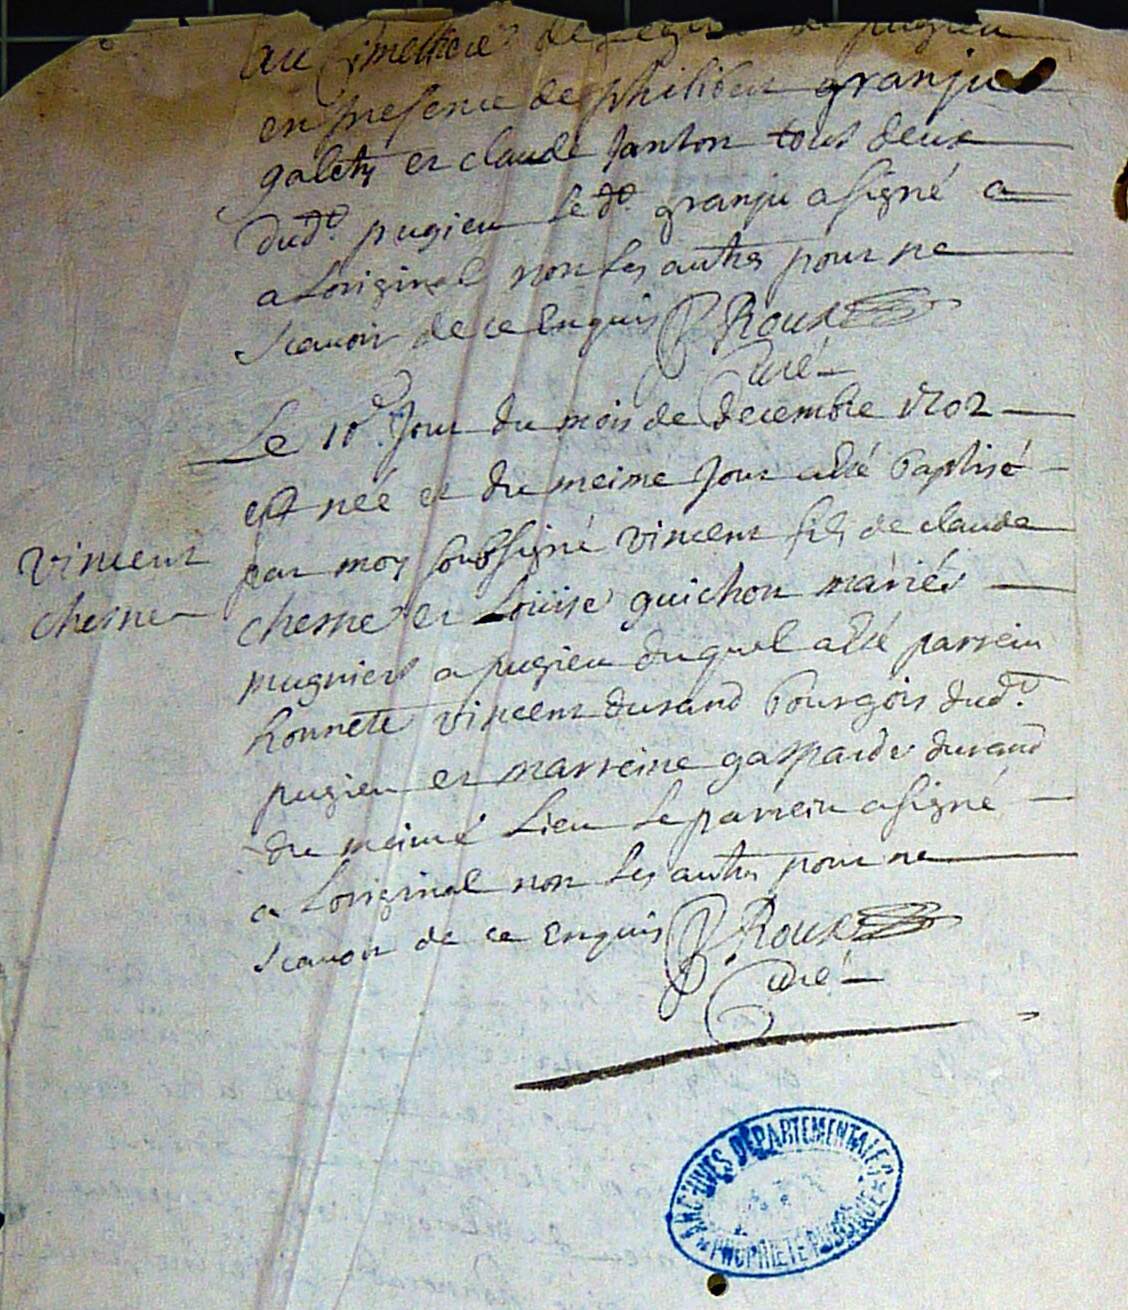 au Cimettiere de leglise de pugieu
en presence de philibert granju
galety et claude janton tous deux
dud.t pugieu le d.t granju a signé a
a Loriginal non les autres pour ne
scauoir de ce Enquis P Roux
Curé
Le 10e Jour du mois de decembre 1702
est neé et du meime Jour a esté Baptisé
par moy soubsigné vincent fils de claude
Vincent
chesne
chesne et Loüise guichon mariés
mugniers a pugieu duquel a esté parrein
honnete vincent durand Bourgois dud.t
pugieu et marreine gasparde durand
du meime Lieu Le parrein a signé
a Loriginal non les autres pour ne
scauoir de ce Enquis P. Roux
Curé
ARCHIVES DÉPARTEMENTALES
PROPRIÉTÉ PUBLIQUE